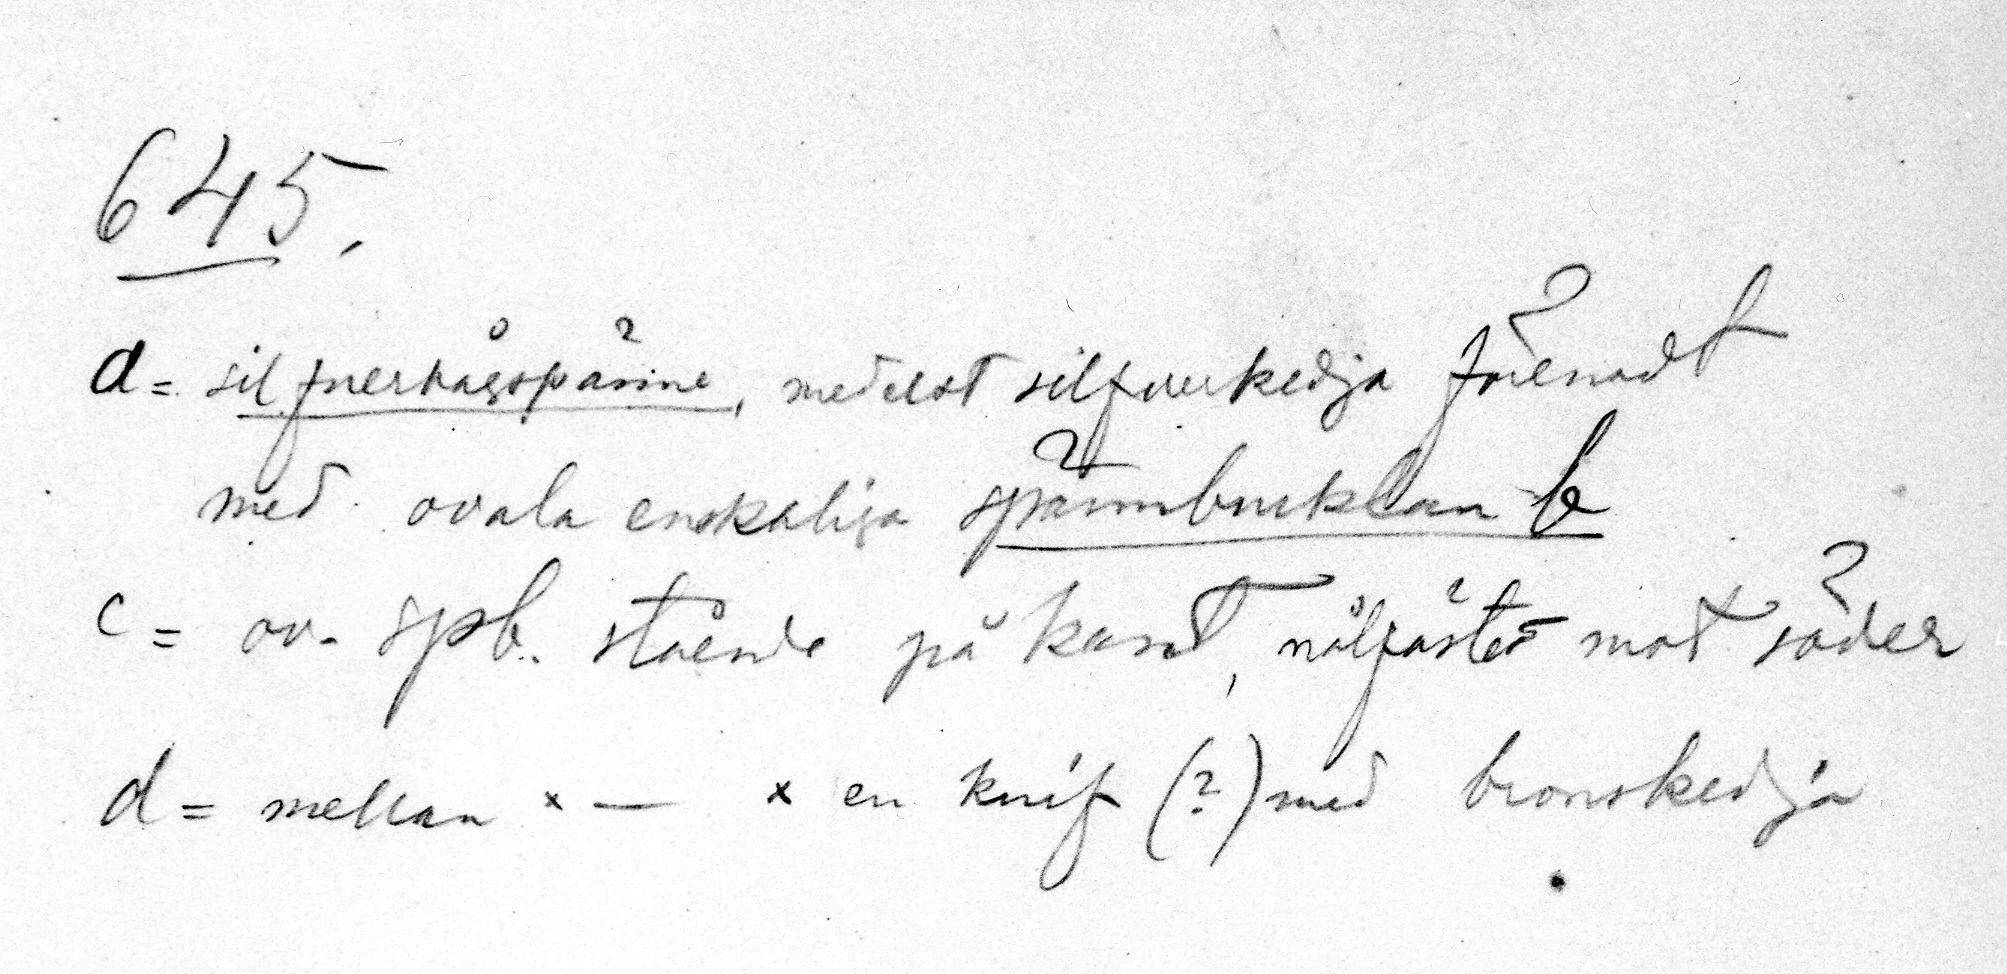 645.
a = silfverhågspänne, medelst silfverkedja förenadt
med ovala enskaliga spännbucklan b
c = ov. spb. stående på kant, nålfästet mot söder
d = mellan x — x en knif (?) med bronskedja